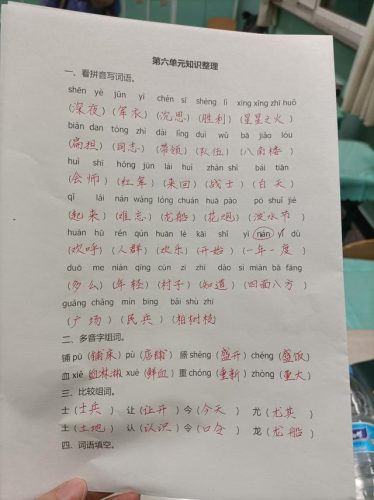 第六单元知识整理
一、看拼音写词语。
shēn yè jūn yī chén sī shèng lì xīng xīng zhī huǒ
(深夜)(军衣)(沉思)(胜利)(星星之火)
biǎn dan tóng zhì dài lǐng duì wǔ bā jiǎo lóu
(扁担)(同志)(带领)(队伍)(八角楼)
huì shī hóng jūn lái huí zhàn shì bái tiān
(会师)(红军)(来回)(战士)(白天)
qǐ lái nán wàng lóng chuán huā pào pō shuǐ jié
(起来)(难忘)(龙船)(花炮)(泼水节)
huān hū rén qún huān lè kāi shǐ yì nián yí dù
(欢呼)(人群)(欢乐)(开始)(一年一度)
duō me nián qīng cūn zi zhī dào sì miàn bā fāng
(多么)(年轻)(村子)(知道)(四面八方)
guǎng chǎng mín bīng bǎi shù zhī
(广场)(民兵)(柏树枝)
二、多音字组词。
铺 pū(铺床)pù(店铺)盛 shèng(盛开)chéng(盛饭)
血 xiě(血淋淋)xuè(鲜血)重 chóng(重新)zhòng(重大)
三、比较组词。
士(士兵)让(让开)今(今天)尤(尤其)
土(土地)认(认识)令(口令)龙(龙船)
四、词语填空。